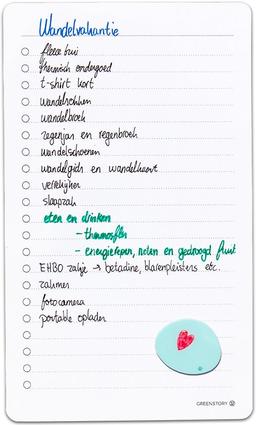 Wandelvakantie
fleece trui
thermisch ondergoed
t-shirt kort
wandelsokken
wandelbroek
regenjas en regenbroek
wandelschoenen
wandelgids en wandelkaart
verrekijker
slaapzak
eten en drinken
- thermosfles
- energierepen, noten en gedroogd fruit
EHBO zakje → betadine, blarenpleisters etc.
zakmes
fotocamera
portable oplader
GREENSTORY